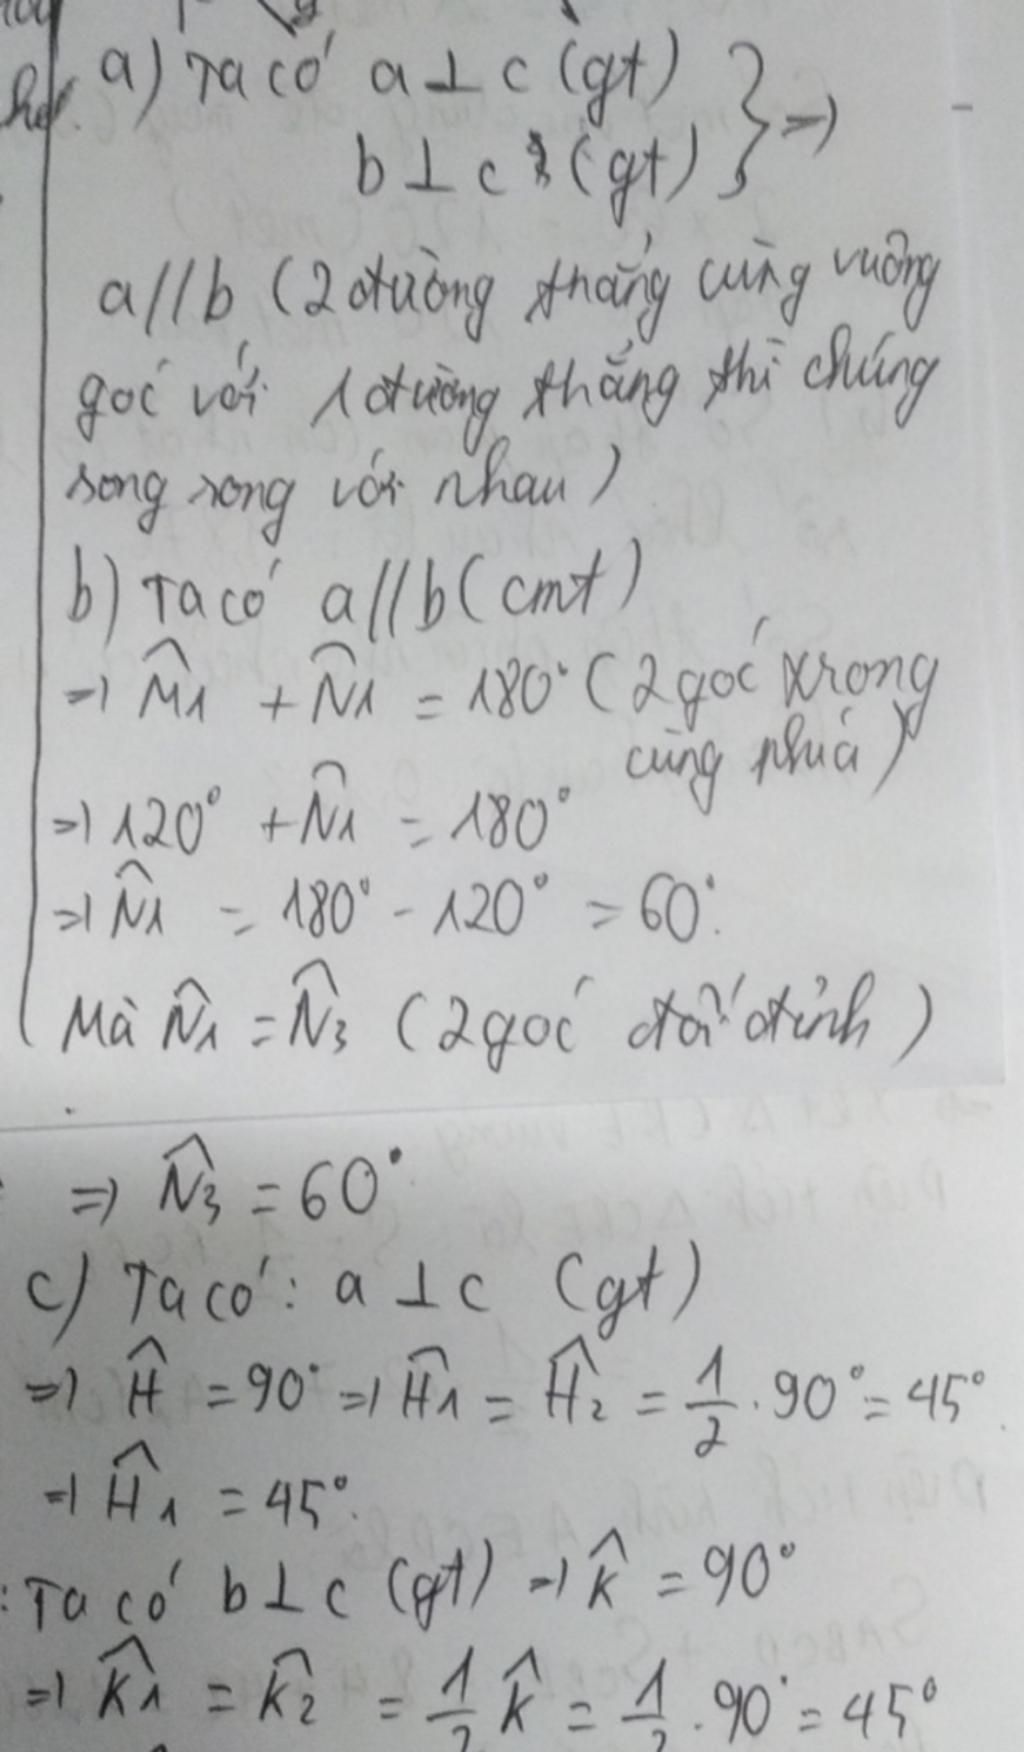 a) Ta có a ⊥ c (gt)
b ⊥ c (gt) } =>
a // b (2 đường thẳng cùng vuông
góc với 1 đường thẳng thì chúng
song song với nhau)
b) Ta có a // b (cmt)
=> M̂1 + N̂1 = 180° (2 góc trong
cùng phía)
=> 120° + N̂1 = 180°
=> N̂1 = 180° - 120° = 60°.
Mà N̂1 = N̂3 (2 góc đối đỉnh)
=> N̂3 = 60°
c) Ta có: a ⊥ c (gt)
=> Ĥ = 90° => Ĥ1 = Ĥ2 = 1/2 . 90° = 45°
=> Ĥ1 = 45°.
Ta có b ⊥ c (gt) => K̂ = 90°
=> K̂1 = K̂2 = 1/2 K̂ = 1/2 . 90° = 45°